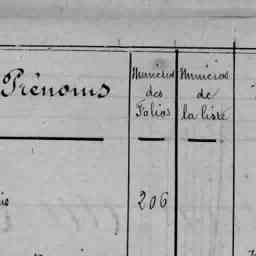 Prénoms
Numéros des Folios
Numéros de la liste
206